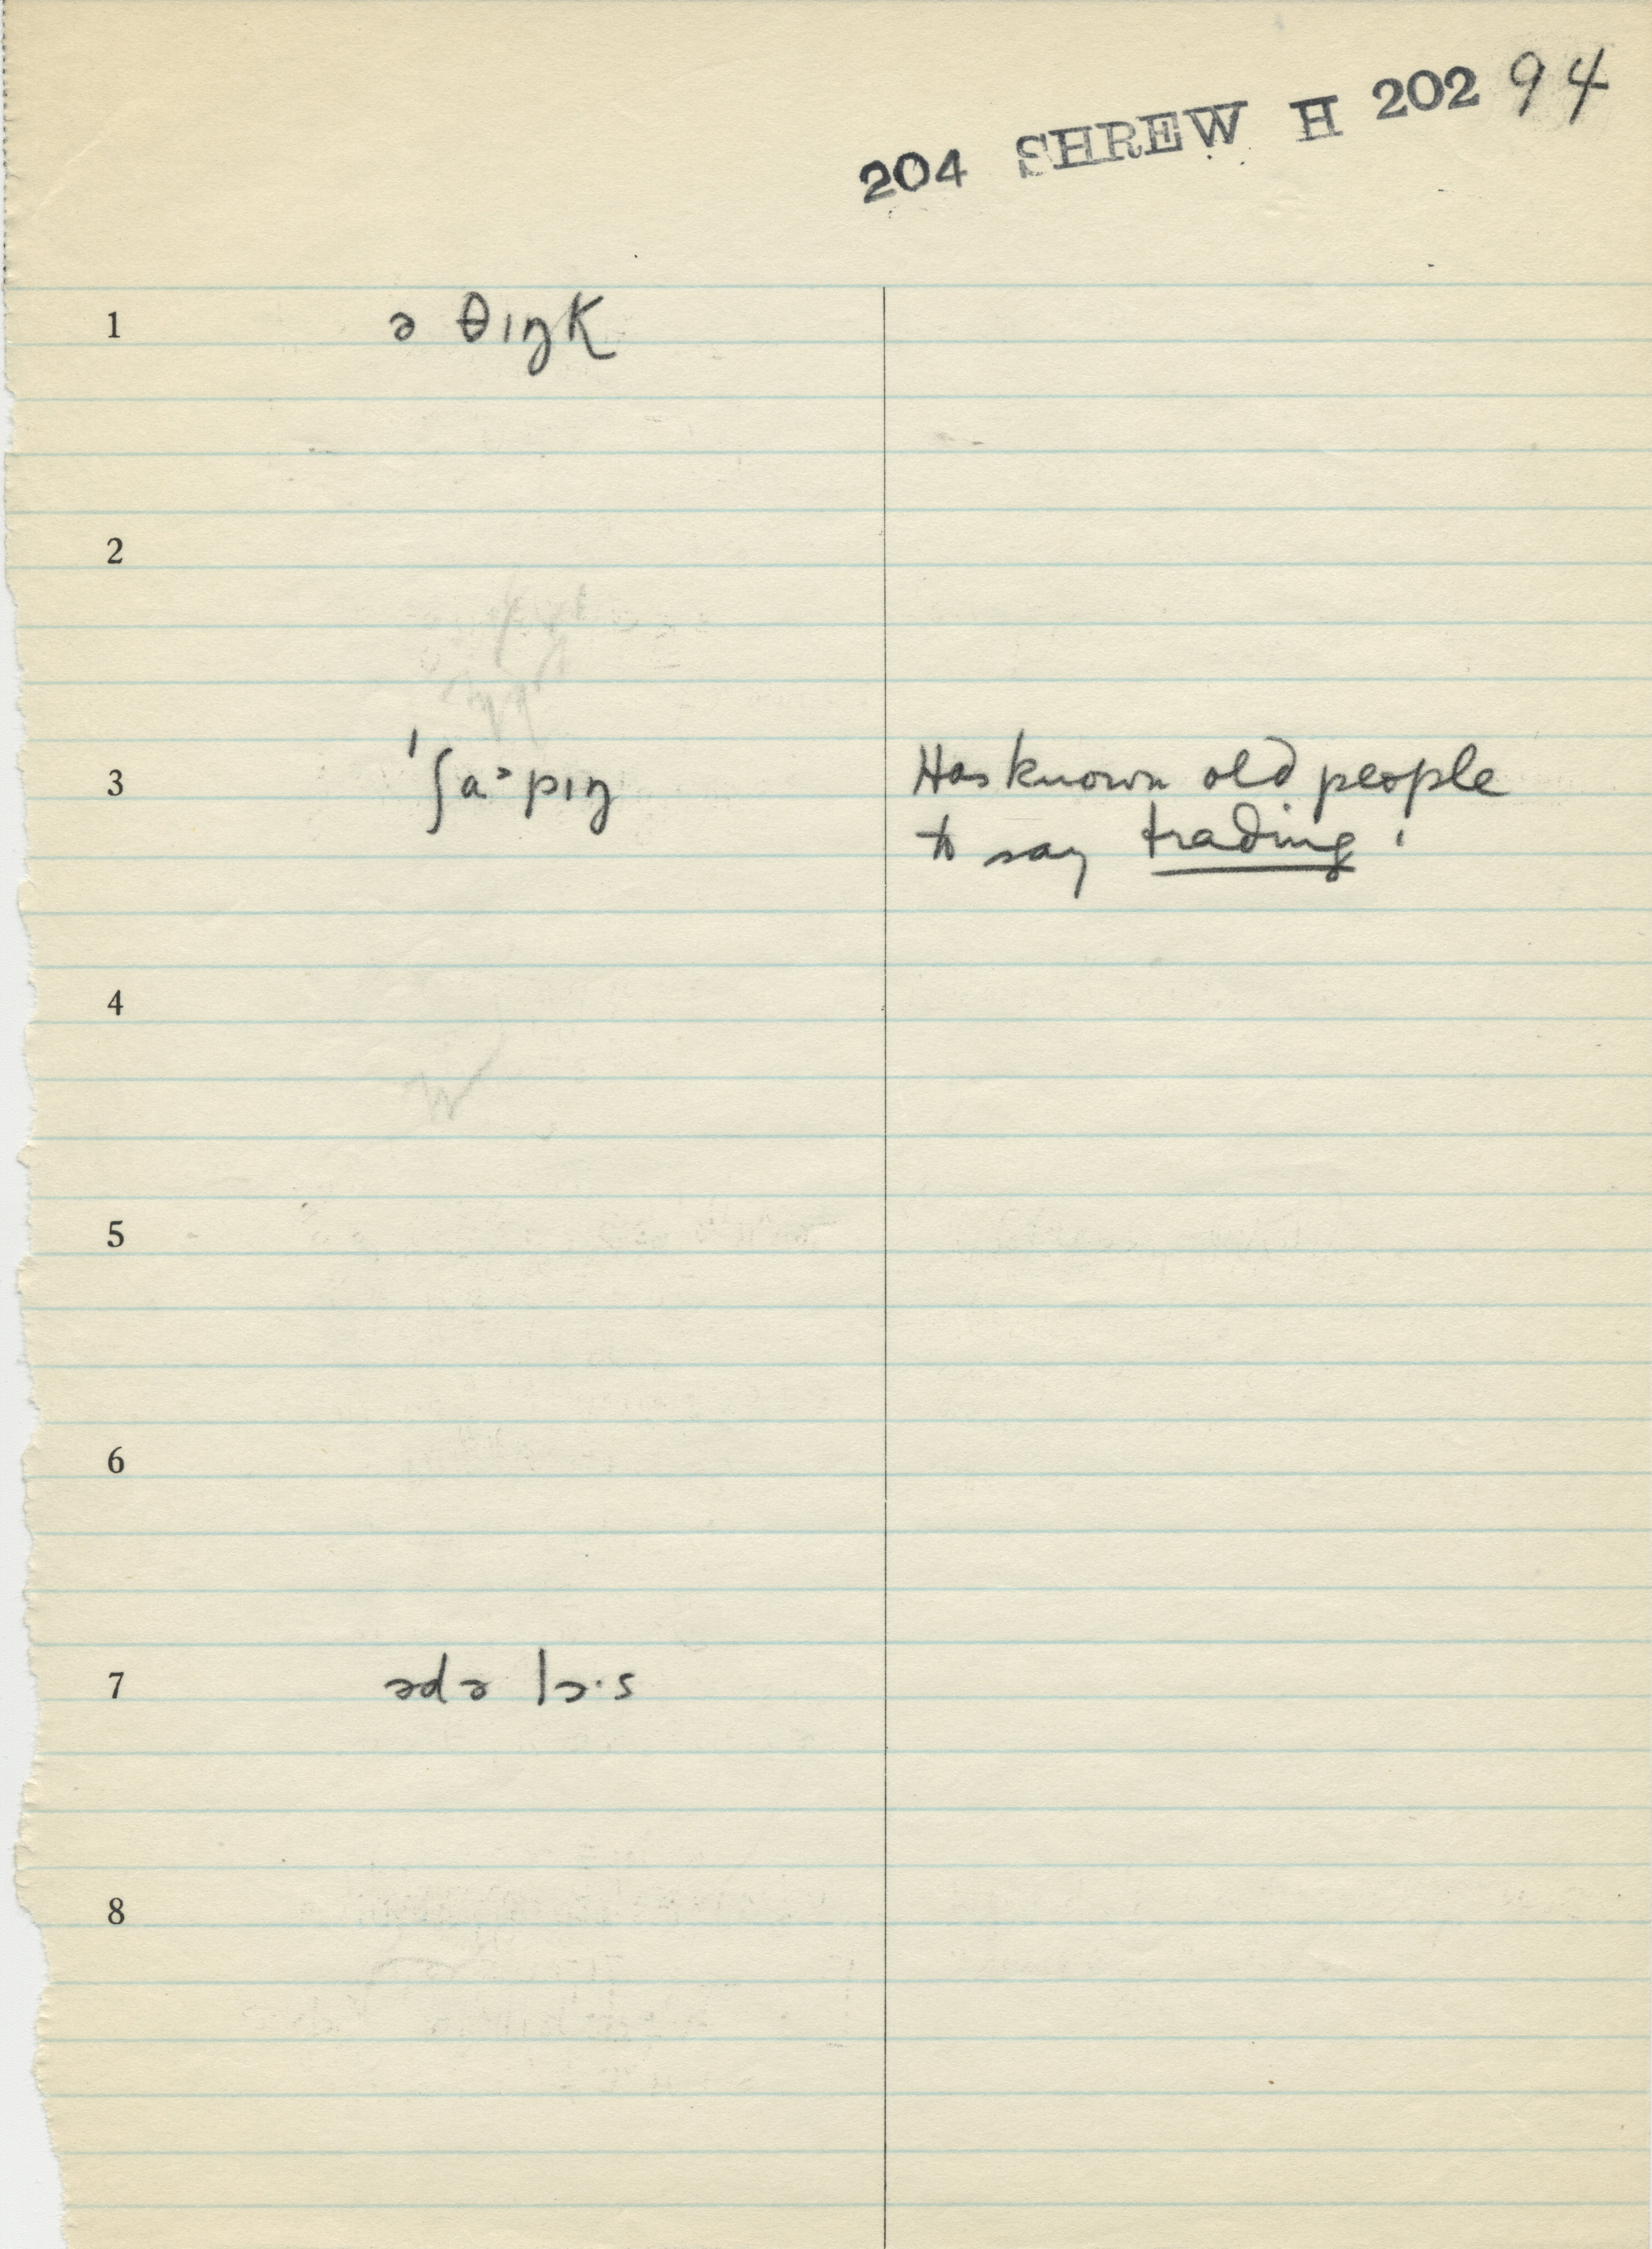 204 SHREW H 202 94
1 ə θɪŋk
2
3 ˈʃɑ˃pɪŋ Has known old people
to say trading.
4
5
6
7 ədə lɔ·s
8